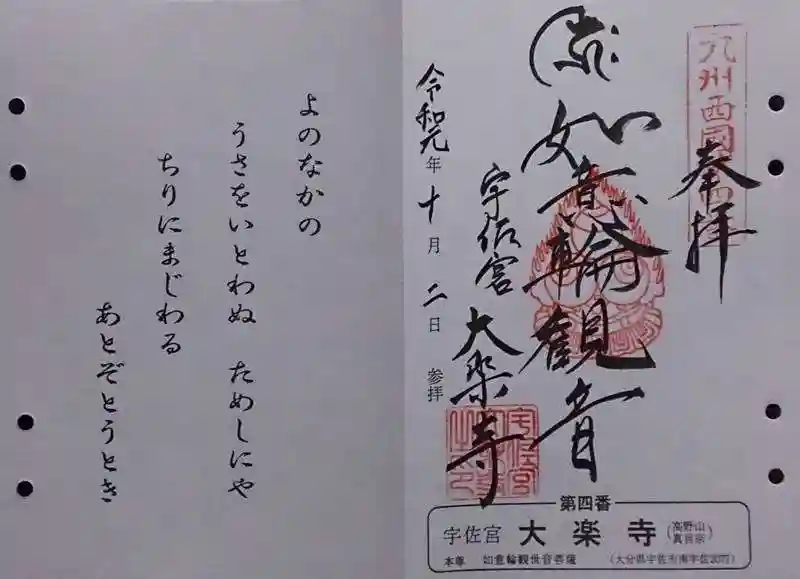 奉拝
九州西國
如意輪観音
宇佐宮
大楽寺
令和元年十月二日 参拝
第四番
宇佐宮 大楽寺 (高野山真言宗)
本尊 如意輪観世音菩薩 (大分県宇佐市南宇佐2077)
よのなかの
うさをいとわぬ ためしにや
ちりにまじわる
あとぞとうとき